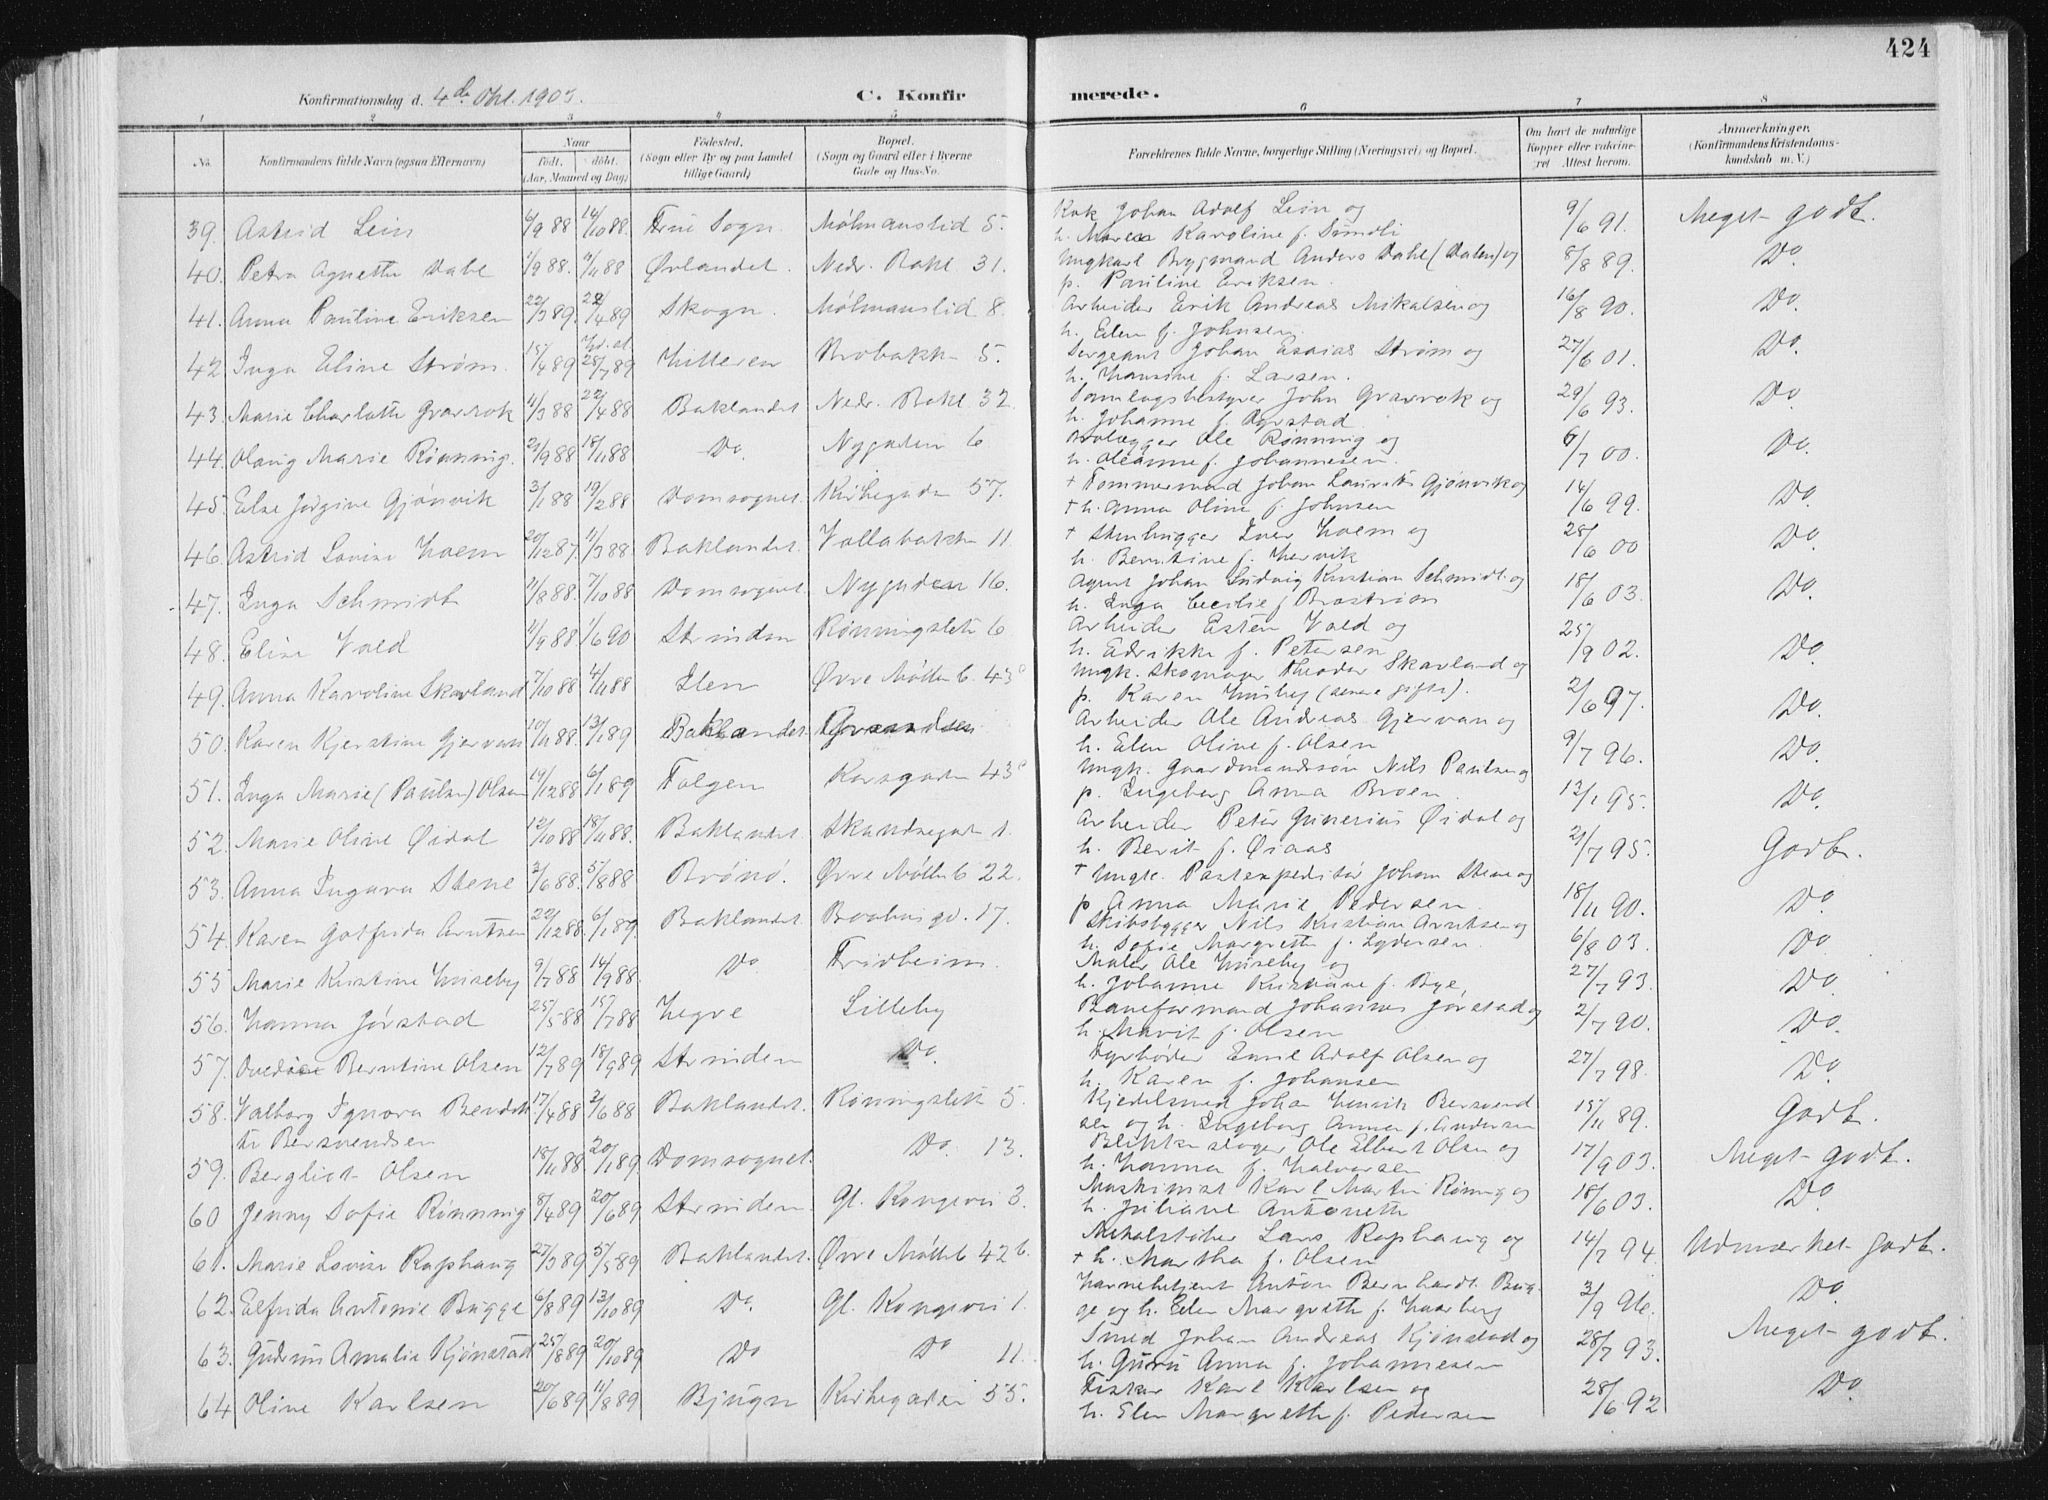 424
Konfirmationsdag d. 4de Okt. 1903.
C. Konfirmerede.
1 2 3 4 5 6 7 8
No.
Konfirmandens fulde Navn (ogsaa Efternavn)
Naar
født. døbt.
(Aar, Maaned og Dag)
Fødested.
(Sogn eller By og paa Landet
tillige Gaard)
Bopæl.
(Sogn og Gaard eller i Byerne
Gade og Hus-No.
Forældrenes fulde Navne, borgerlige Stilling (Næringsvei) og Bopæl.
Om havt de naturlige
Kopper eller vaccine-
ret Attest herom.
Anmærkninger.
(Konfirmandens Kristendoms-
kundskab m. V.)
39. Astrid Lein 6/9 88 14/10 88. Frue Sogn. Mølmanslid 5. Kok Johan Adolf Lein og 9/6 91. Meget godt.
h. Maren Karoline f. Sundli
40. Petra Agnette Dahl 1/9 88. 4/11 88 Ørlandet. Nedr. Bakl 31. Ungkarl Brygmand Anders Dahl (Dalen) og 8/8 89. Do.
p. Pauline Eriksen.
41. Anna Pauline Eriksen 22/3 89. 22/4 89 Skogn. Mølmanslid 8. Arbeider Erik Andreas Mikalsen og 16/8 90. Do.
h. Elen f. Johnsen.
42 Inga Eline Strøm. 15/4 89 28/7 89 Hitteren Brobakk. 5. Sergeant Johan Esaias Strøm og 27/6 01. Do.
h. Hansine f. Larsen.
43. Marie Charlotte Gravrok 4/3 88 22/4 88 Baklandet Nedr. Bakl 32. Samlagsbestyrer John Gravrok og 29/6 93. Do.
h. Johanne f. Rystad
44. Olaug Marie Rønning. 21/9 88 18/11 88 Do. Nygaten 6 Ole Rønning og 6/7 00. Do.
h. Oleanne f. Johannesen.
45. Else Jørgine Gjønvik 3/1 88 19/2 88 Domsognet. Kirkegaden 57. + Tømmermand Johan Laurits Gjønvik og 14/6 99. Do
+ h. Anna Oline f. Johnsen
46. Astrid Lovise Hoem 20/12 87. 11/3 88. Baklandet. Vollabakken 11. + Stenhugger Iver Hoem og 28/6 00 Do.
h. Berntine f. Hervik
47. Inga Schmidt 11/8 88. 7/10 88 Domsognet. Nygaden 16. Agent Johan Ludvig Kristian Schmidt og 18/6 03. Do.
h. Inga Cecilie f. Brostrøm
48. Elise Vold 11/9 88 1/6 90 Strinden Rønningsletta 6 Arbeider Esten Vold og 25/9 02. Do.
h. Edrikke f. Petersen
49. Anna Karoline Skavland 7/10 88 4/11 88 Ilen Øvre Møllenb. 43c Ungk. Skomager Theodor Skavland og 2/6 97. Do.
p. Karen Huseby (senere gifte).
50. Karen Kjerstine Gjervan 10/11 88. 13/1 89 Baklandet. Arbeider Ole Andreas Gjervan og 9/7 96. Do.
h. Elen Oline f. Olsen
51. Inga Marie (Paulsen) Olsen 19/12 88 6/1 89 Folgen Korsgaden 43c Ungk. Gaardmandssøn Nils Paulsen og 13/1 95. Do.
p. Ingeborg Anna Broen.
52. Marie Oline Øidal 12/10 88 18/11 88. Baklandet. Skandsegaden 1. Arbeider Peter Gunerius Øidal og 21/7 95. Godt.
h. Berit f. Øiaas
53. Anna Ingara Stene 2/6 88. 5/8 88 Brønø. Øvre Møllenb 22. + Ungk. Postexpeditør Johan Stene og 18/11 90. Do.
p Anna Marie Pedersen.
54. Karen Gotfrida Arntsen 22/12 88. 6/1 89. Baklandet Bohusgd. 17. Skibsbygger Nils Kristian Arntsen og 6/8 03. Do
h. Sofie Margrethe f. Lydersen.
55 Marie Kristine Huseby 9/7 88 14/9 88. Do Fridheim. Maler Ole Huseby og 27/7 93. Do.
h. Johanne Kristiane f. Bye,
56. Hanna Jørstad 25/5 88 15/7 88 Hegre Lilleby Baneformand Johannes Jørstad og 2/7 90. Do.
h. Marit f. Olsen
57. Berntine Olsen 12/7 89 18/9 89 Strinden Do. Fyrbøder Emil Adolf Olsen og 27/7 98. Do.
h. Karen f. Johansen
58. Valborg Ignora Bendik- 17/4 88 2/6 88 Baklandet. Rønningsletta 5. Kjedelsmed Johan Henrik Bersvend 15/11 89. Godt.
te Bersvendsen
sen og h. Ingeborg Anna f. Andersen
59. Bergliot Olsen 18/11 88. 20/1 89. Domsognet. Do. 13. Blikkenslager Ole Elbert Olsen og 17/9 03. Meget godt.
h. Hanna f. Halvorsen
60 Jenny Sofie Rønning 8/4 89 20/6 89 Strinden. Gl. Kongevei 3. Maskinist Karl Martin Rønning og 18/6 03. Do.
h. Juliane Antonette
61. Marie Lovise Raphaug 27/3 89 5/5 89 Baklandet. Øvre Møllenb 42 b. Metalstøber Lars Raphaug og 14/7 94. Udmærket godt.
+ h. Martha f. Olsen
62. Elfrida Antonie Bugge 6/8 89 13/10 89 Do. Gl. Kongevei 1. Havnebetjent Anton Bernhardt Bug- 3/9 96. Do.
ge og h. Elen Margrethe f. Haarberg
63. Gudrun Amalie Kjønstad 25/8 89 20/10 89 Do Do 11. Smed Johan Andreas Kjønstad og 28/7 93. Meget godt.
h. Guru Anna f. Johannesen
64 Oline Karlsen 20/6 89 11/8 89 Bjugn Kirkegaden 55. Fisker Karl Karlsen og 28/6 92 Do.
h. Elen Margrethe f. Pedersen